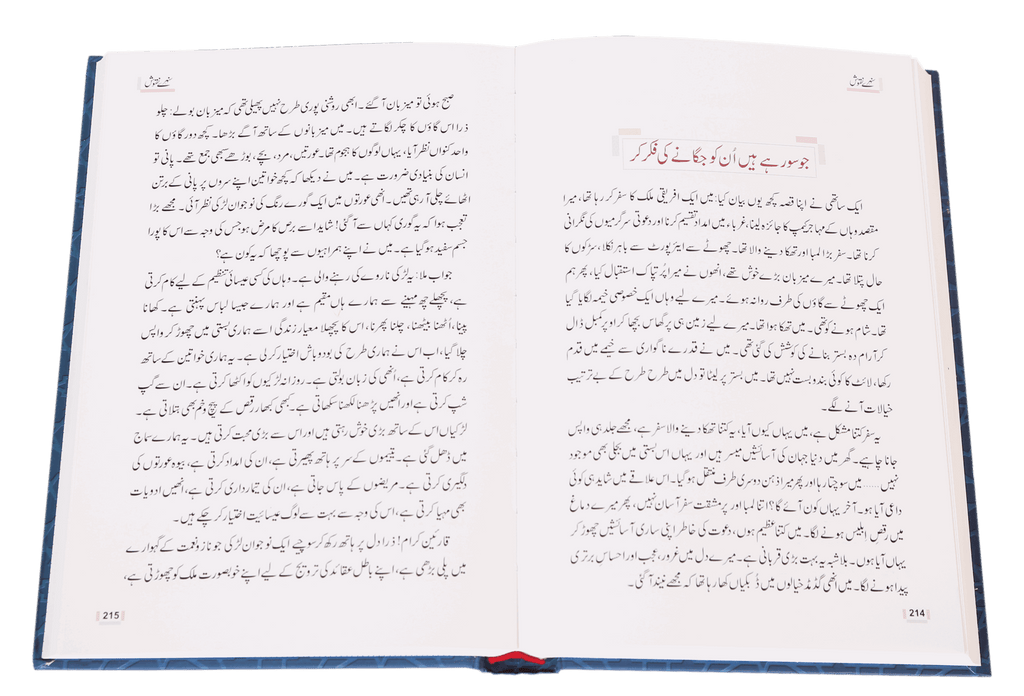 سنہرے نقوش
جو سو رہے ہیں اُن کو جگانے کی فکر کر
ایک ساتھی نے اپنا قصہ کچھ یوں بیان کیا: میں ایک افریقی ملک کا سفر کر رہا تھا، میرا
مقصد وہاں کے مہاجر کیمپ کا جائزہ لینا، غرباء میں امداد تقسیم کرنا اور دعوتی سرگرمیوں کی نگرانی
کرنا تھا۔ سفر بڑا لمبا اور تھکا دینے والا تھا۔ چھوٹے سے ایئر پورٹ سے باہر نکلا، سڑکوں کا
حال پتلا تھا۔ میرے میزبان بڑے خوش تھے، انھوں نے میرا پُر تپاک استقبال کیا، پھر ہم
ایک چھوٹے سے گاؤں کی طرف روانہ ہوئے۔ میرے لیے وہاں ایک خصوصی خیمہ لگایا گیا
تھا۔ شام ہونے کو تھی۔ میں تھکا ہوا تھا۔ میرے لیے زمین ہی پر گھاس بچھا کر اوپر کمبل ڈال
کر آرام دہ بستر بنانے کی کوشش کی گئی تھی۔ میں نے قدرے ناگواری سے خیمے میں قدم
رکھا، لائٹ کا کوئی بندوبست نہیں تھا۔ میں بستر پر لیٹا تو دل میں طرح طرح کے بے ترتیب
خیالات آنے لگے۔
یہ سفر کتنا مشکل ہے، میں یہاں کیوں آیا، یہ کتنا تھکا دینے والا سفر ہے، مجھے جلد ہی واپس
جانا چاہیے۔ گھر میں دنیا جہان کی آسائشیں میسر ہیں اور یہاں اس بستی میں بجلی بھی موجود
نہیں...... میں سوچتا رہا اور پھر میرا ذہن دوسری طرف منتقل ہو گیا۔ اس علاقے میں شاید ہی کوئی
داعی آیا ہو۔ آخر یہاں کون آئے گا؟ اتنا لمبا اور پر مشقت سفر آسان نہیں، پھر میرے دماغ
میں رقص ابلیس ہونے لگا۔ میں کتنا عظیم ہوں، دعوت کی خاطر اپنی ساری آسائشیں چھوڑ کر
یہاں آیا ہوں۔ بلاشبہ یہ بہت بڑی قربانی ہے۔ میرے دل میں غرور، عجب اور احساس برتری
پیدا ہونے لگا۔ میں انھی گڈمڈ خیالوں میں ڈبکیاں کھا رہا تھا کہ مجھے نیند آ گئی۔
214
سنہرے نقوش
صبح ہوئی تو میزبان آ گئے۔ ابھی روشنی پوری طرح نہیں پھیلی تھی کہ میزبان بولے: چلو
ذرا اس گاؤں کا چکر لگاتے ہیں۔ میں میزبانوں کے ساتھ آگے بڑھا۔ کچھ دور گاؤں کا
واحد کنواں نظر آیا، یہاں لوگوں کا ہجوم تھا۔ عورتیں، مرد، بچے، بوڑھے سبھی جمع تھے۔ پانی تو
انسان کی بنیادی ضرورت ہے۔ میں نے دیکھا کہ کچھ خواتین اپنے سروں پر پانی کے برتن
اٹھائے چلی آ رہی تھیں۔ انھی عورتوں میں ایک گورے رنگ کی نوجوان لڑکی نظر آئی۔ مجھے بڑا
تعجب ہوا کہ یہ گوری کہاں سے آ گئی! شاید اسے برص کا مرض ہو جس کی وجہ سے اس کا پورا
جسم سفید ہو گیا ہے۔ میں نے اپنے ہمراہیوں سے پوچھا کہ یہ کون ہے؟
جواب ملا: یہ لڑکی ناروے کی رہنے والی ہے۔ وہاں کی کسی عیسائی تنظیم کے لیے کام کرتی
ہے، پچھلے چھ مہینے سے ہمارے ہاں مقیم ہے اور ہمارے جیسا لباس پہنتی ہے۔ کھانا
پینا، اُٹھنا بیٹھنا، چلنا پھرنا، اس کا پچھلا معیار زندگی اسے ہماری بستی میں چھوڑ کر واپس
چلا گیا، اب اس نے ہماری طرح کی بود و باش اختیار کر لی ہے۔ یہ ہماری خواتین کے ساتھ
رہ کر کام کرتی ہے، اُنھی کی زبان بولتی ہے۔ روزانہ لڑکیوں کو اکٹھا کرتی ہے۔ ان سے گپ
شپ کرتی ہے اور انھیں پڑھنا لکھنا سکھاتی ہے۔ کبھی کبھار رقص کے پیچ و خم بھی بتلاتی ہے۔
لڑکیاں اس کے ساتھ بڑی خوش رہتی ہیں اور اس سے بڑی محبت کرتی ہیں۔ یہ ہمارے سماج
میں ڈھل گئی ہے۔ یتیموں کے سر پر ہاتھ پھیرتی ہے، ان کی امداد کرتی ہے، بیوہ عورتوں کی
دلگیری کرتی ہے۔ مریضوں کے پاس جاتی ہے، ان کی تیمارداری کرتی ہے، انھیں ادویات
بھی مہیا کرتی ہے، اس کی وجہ سے بہت سے لوگ عیسائیت اختیار کر چکے ہیں۔
قارئین کرام! ذرا دل پر ہاتھ رکھ کر سوچیے ایک نوجوان لڑکی جو ناز و نعمت کے گہوارے
میں پلی بڑھی ہے، اپنے باطل عقائد کی ترویج کے لیے اپنے خوبصورت ملک کو چھوڑتی ہے،
215